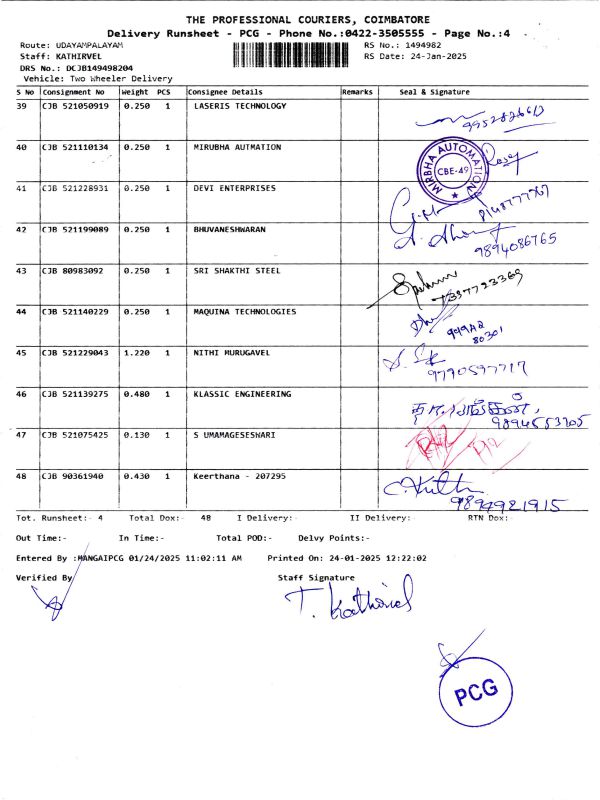 THE PROFESSIONAL COURIERS, COIMBATORE
Delivery Runsheet - PCG - Phone No.:0422-3505555 - Page No.:4
Route: UDAYAMPALAYAM RS No.: 1494982
Staff: KATHIRVEL RS Date: 24-Jan-2025
DRS No.: DCJB149498204
Vehicle: Two Wheeler Delivery
S No Consignment No Weight PCS Consignee Details Remarks Seal & Signature
39 CJB 521050919 0.250 1 LASERIS TECHNOLOGY
40 CJB 521110134 0.250 1 MIRUBHA AUTMATION MIRBHA AUTOMATION CBE-49
41 CJB 521228931 0.250 1 DEVI ENTERPRISES
42 CJB 521199089 0.250 1 BHUVANESHWARAN 9894086765
43 CJB 80983092 0.250 1 SRI SHAKTHI STEEL 7397723369
44 CJB 521140229 0.250 1 MAQUINA TECHNOLOGIES
45 CJB 521229043 1.220 1 NITHI MURUGAVEL 9790597717
46 CJB 521139275 0.480 1 KLASSIC ENGINEERING
47 CJB 521075425 0.130 1 S UMAMAGESESWARI
48 CJB 90361940 0.430 1 Keerthana - 207295 9894921915
Tot. Runsheet:- 4 Total Dox:- 48 I Delivery:- II Delivery:- RTN Dox:-
Out Time:- In Time:- Total POD:- Delvy Points:-
Entered By :MANGAIPCG 01/24/2025 11:02:11 AM Printed On: 24-01-2025 12:22:02
Verified By Staff Signature
T. Kathirvel
PCG